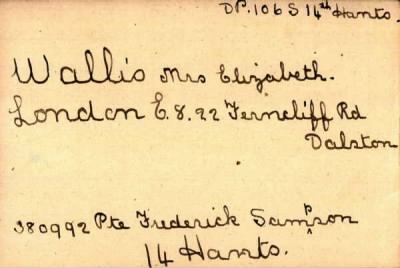 DP.106 S 14th Hants.
Wallis Mrs Elizabeth.
London E.8. 22 Ferncliff Rd
Dalston
380992 Pte Frederick Sampson
14 Hants.